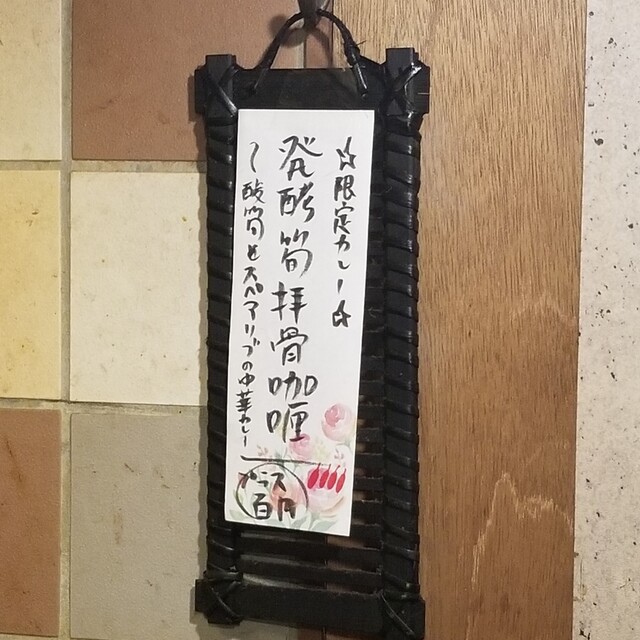 ☆限定カレー☆
発酵筍拝骨咖喱
〜酸筍とスペアリブの中華カレー
プラス
百円